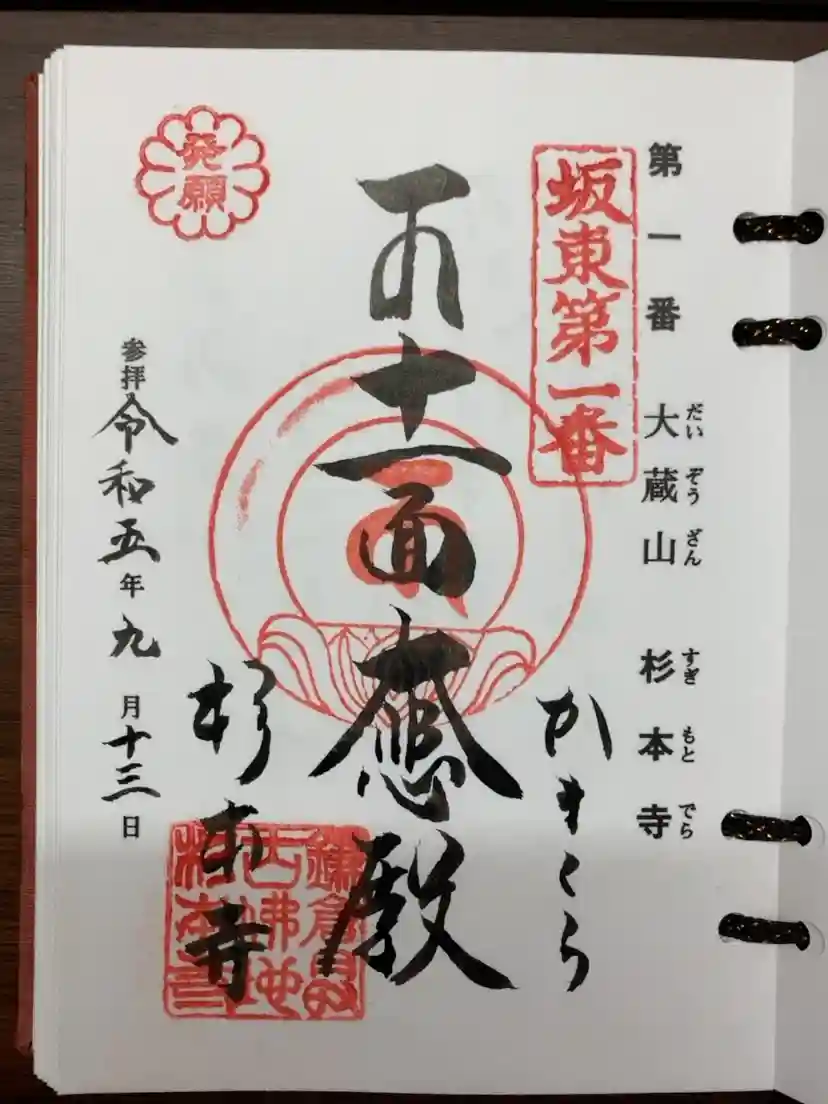 第一番 大蔵山 杉本寺
だい ぞう ざん すぎ もと でら
坂東第一番
かまくら
十一面大悲殿
杉本寺
発願
参拝 令和五年九月十三日